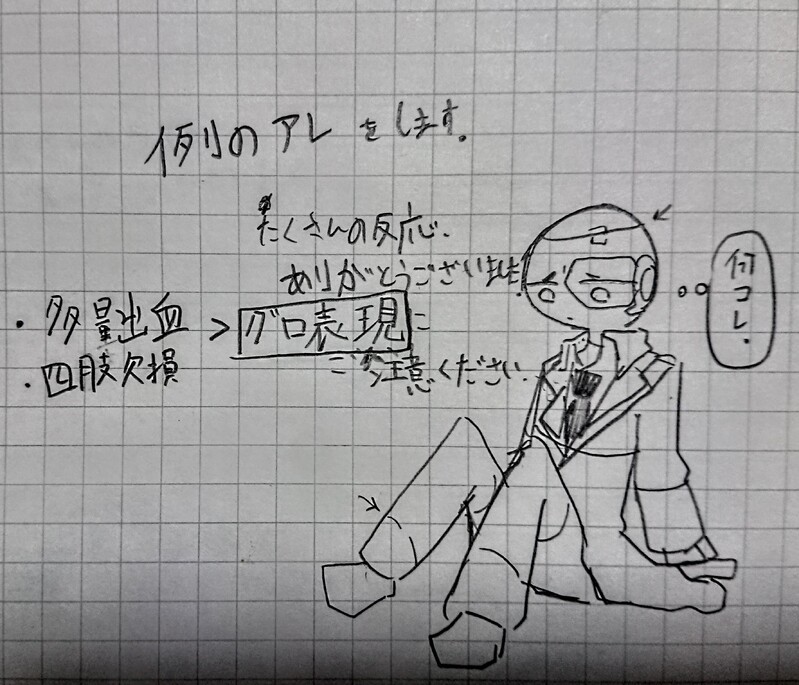 例のアレをします。
たくさんの反応、
ありがとうございました!
・多量出血
・四肢欠損
> グロ表現に
ご注意ください。
何コレ。